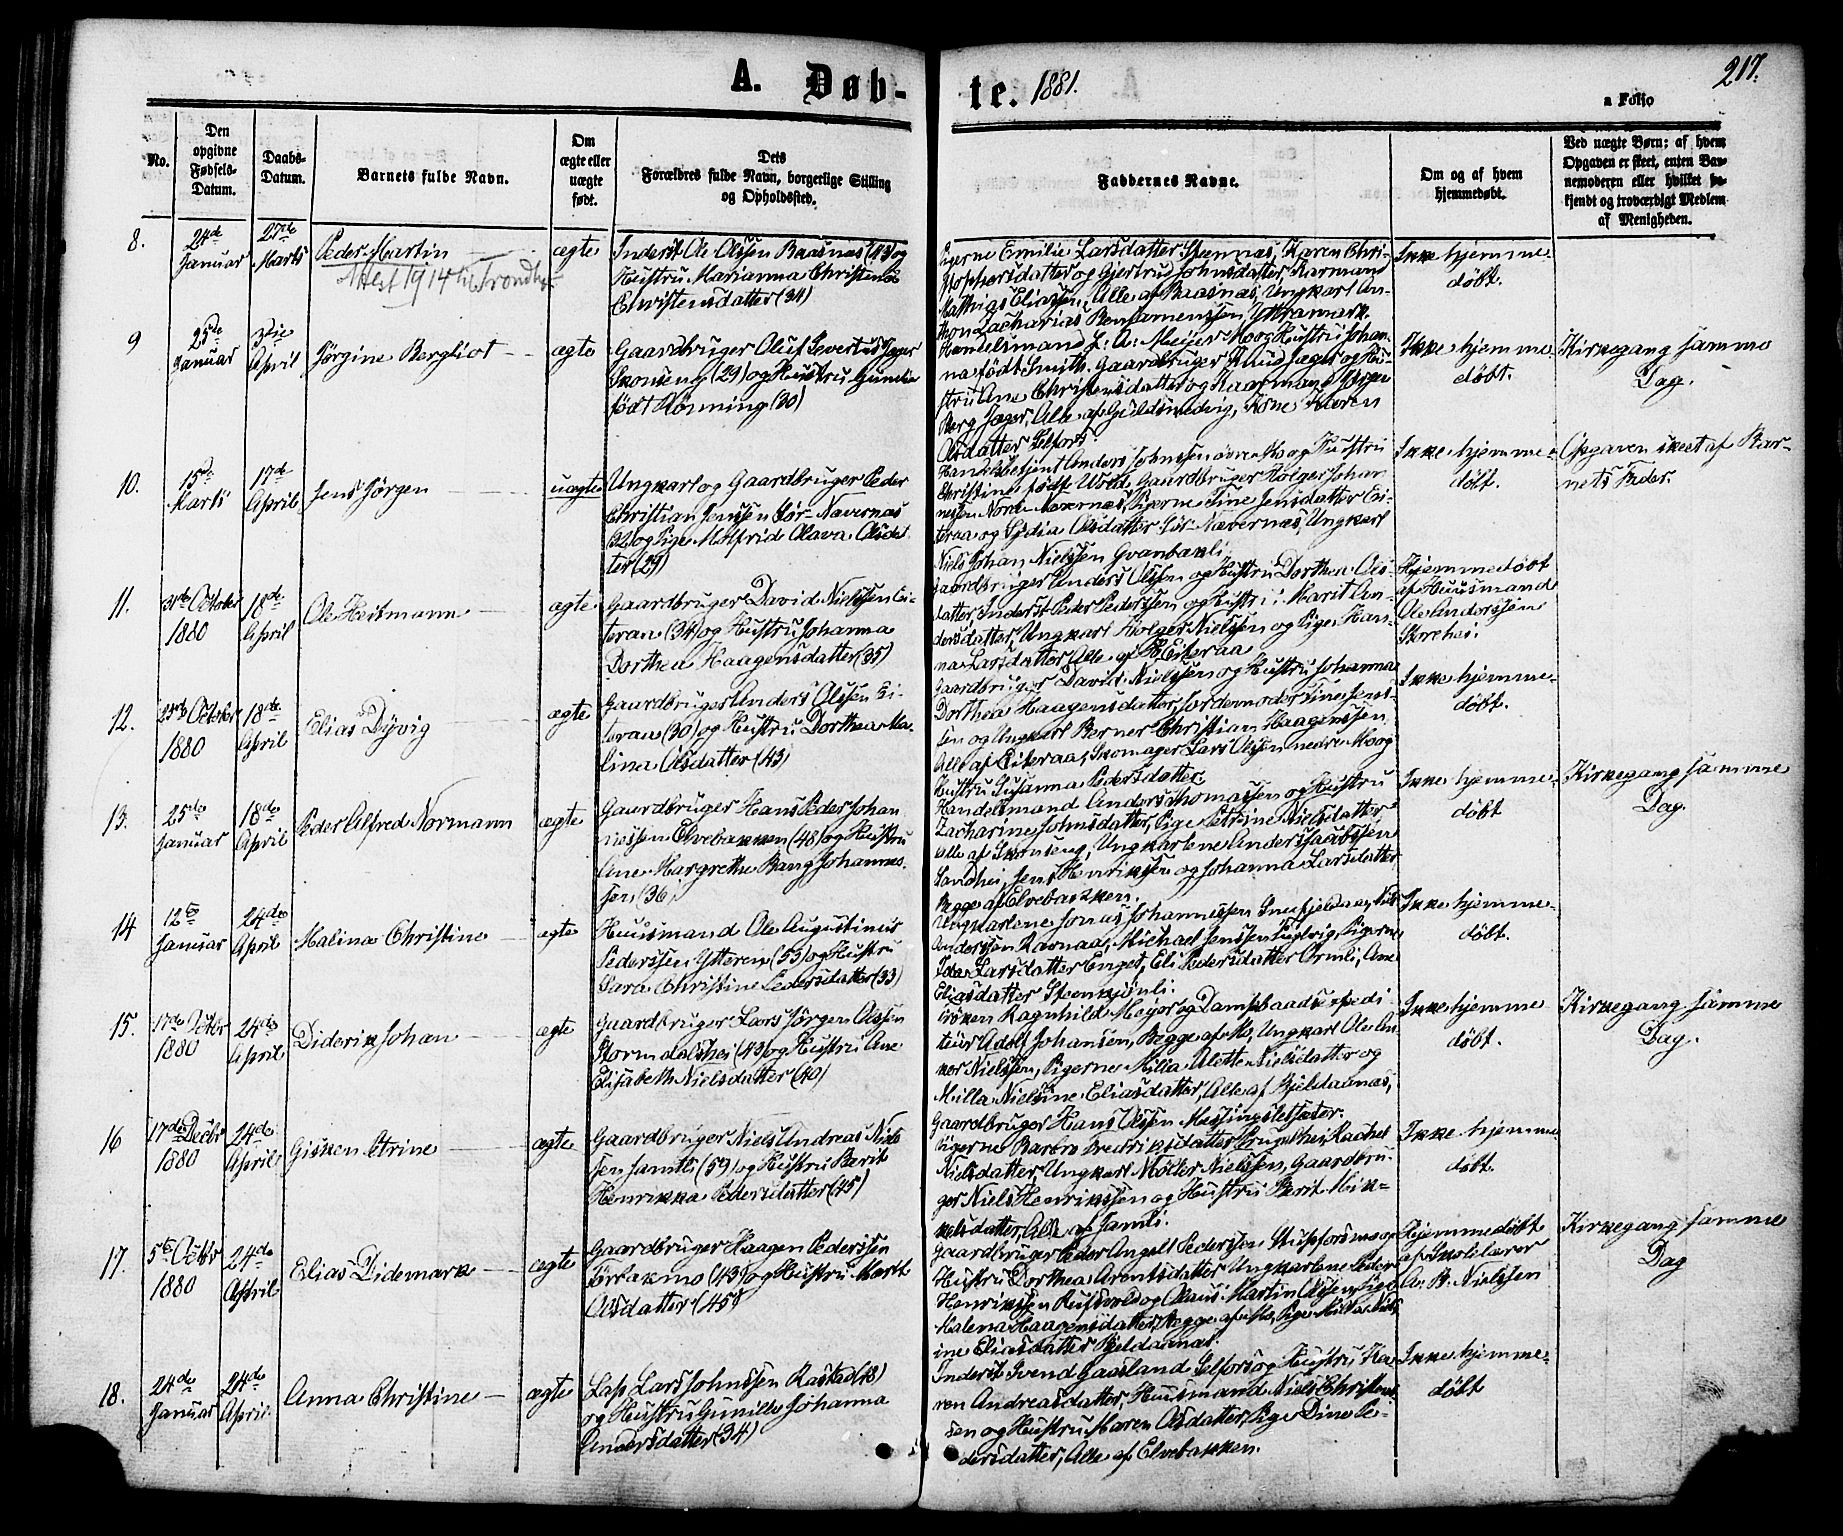 A. Døb-
te. 1881.
217.
a Folio
No.
Den opgivne Fødsels-Datum.
Daabs-Datum.
Barnets fulde Navn.
Om ægte eller uægte født.
Dets Forældres fulde Navn, borgerlige Stilling og Opholdssted.
Faddernes Navne.
Om og af hvem hjemmedøbt.
Ved uægte Børn; af hvem Opgaven er skeet, enten Barnemoderen eller hvilket bekjendt og troværdigt Medlem af Menigheden.
8.
24de Januar
27de Marts
Peder Martin
Attest 1914 til Trondhj.
ægte
Inderst Ole Olssen Baasnæs (43) og
Hustru Marianna Christence
Christensdatter (34)
Pigerne Emilie Larsdatter Stennæs, Karen Chri-
stophersdatter og Gjertrud Johnsdatter, Kaarmand
Mathias Eliassen, Alle af Baasnæs, Ungkarl An-
thon Zacharias Benjamenssen Yttramark.
Ikke hjemme-
døbt.
9
25de Januar
3die April
Jørgine Bergliot
ægte
Gaardbruger Oluf Severtus Jæger
Skonseng (29) og Hustru Gunelie
født Rønning (30)
Handelsmand L. A. Meijer Mo og Hustru Johan-
na født Smith. Gaardbruger Knud Jæger og Hu-
stru Ane Christensdatter og Kaarmand Jørgen
Berg Jæger, Alle af Guldsmedvig, Kone Karen
Olsdatter Selfors.
Ikke hjemme-
døbt.
Kirkegang samme
Dag.
10.
15de Marts
17de April
Jens Jørgen
uægte
Ungkarl og Gaardbruger Peder
Christian Jenssen Sør-Nævernæs
32 og Pige Malfrid Olava Olsdat
ter (29)
Handelsbetjent Anders Johnssen øvre Mo og Hustru
Christine født Wold, Gaardbruger Holger Johan
nessen Nordre Nævernæs, Pigerne Sine Jensdatter Ei-
teraa og Lydia Olsdatter Sør-Nævernæs, Ungkarl
Niels Johan Nielssen Gvanbakli.
Ikke hjemme-
døbt.
Opgaven skeet af Bar-
nets Fader.
11.
31te October 1880
18de April
Ole Heitmann
ægte
Gaardbruger David Nielssen Ei-
teraa (34) og Hustru Johanna
Dorthea Haagensdatter (35)
Gaardbruger Anders Olssen og Hustru Dorthea Ols-
datter, Inderst Peder Pederssen og Hustru Marit An-
dersdatter, Ungkarl Holger Nielssen og Pige Han-
na Larsdatter, Alle af Eiteraa
Hjemmedøbt
af Huusmand
Ole Anderssen
Storehei.
12.
23de October 1880
18de April
Elias Dyvig
ægte
Gaardbruger Anders Olssen Ei-
teraa (30) og Hustru Dorthea Ma-
lina Olsdatter (43)
Gaardbruger David Nielssen og Hustru Johanna
Dorthea Haagensdatter, Jordemoder Tine Jens-
sen og Ungkarl Berner Christian Haagenssen,
Alle af Eiteraa, Skomager Lars Olssen nedre Mo og
Hustru Susanna Pedersdatter.
Ikke hjemme-
døbt.
13.
25de Januar
18de April
Peder Alfred Normann
ægte
Gaardbruger Hans Peder Johan
nessen Elvebakken (48) og Hustru
Ane Margrethe Bang Johannes-
sen (36)
Handelsmand Anders Thomassen og Hustru
Zacharine Johnsdatter, Pige Petrine Nielsdatter,
Alle af Skonseng, Ungkarlene Anders Jacobssen
Sandhei, Jens Henrikssen og Johanna Larsdatter,
Begge af Elvebakken.
Ikke hjemme-
døbt
Kirkegang samme
Dag.
14
12te Januar
24de April
Malina Christine
ægte
Huusmand Ole Augustinus
Pederssen Ytteren (53) og Hustru
Sara Christine Pedersdatter (33)
Ungkarlene Jonas Johannessen Snefjeldaa, Niels
Anderssen Ravnaa, Michael Jenssen Fuglvig, Pigerne
Ida Larsdatter Enget, Eli Pedersdatter Ormli, Ane
Eliasdatter Stenkjønli.
Ikke hjemme-
døbt.
15.
17de Octbr 1880
24de April
Diderik Johan
ægte
Gaardbruger Lars Jørgen Olssen
Stormdalshei (43) og Hustru Ane
Elisabeth Nielsdatter (40)
Frøken Ragnhild Meyer og Dampbaadsexpedi-
teur Adolf Johansen, Begge af Mo, Ungkarl Ole An-
ker Nielssen, Pigerne Milia Alette Nielsdatter og
Milla Nielsine Eliasdatter, Alle af Bjeldaanæs,
Gaardbruger Hans Olssen Messingsletsæter.
Ikke hjemme
døbt.
Kirkegang samme
Dag.
16
17de Decbr 1880
24de April
Gisken Petrine
ægte
Gaardbruger Niels Andreas Niels
sen Jamtli (59) og Hustru Berit
Henrikka Pedersdatter (45)
Pigerne Barbro Fredriksdatter Grupehei, Rachel
Nielsdatter, Ungkarl Møller Nielssen, Gaardbru-
ger Niels Henrikssen og Hustru Berit Mik-
kelsdatter, Alle af Jamli.
Ikke hjemme
døbt.
17.
5te Octbr 1880
24de April
Elias Didemark
ægte
Gaardbruger Haagen Pederssen
Tørbakmo (43) og Hustru Marit
Olsdatter (45)
Gaardbruger Peder Angell Pederssen Stupforsmo og
Hustru Dorthea Arentsdatter, Ungkarlene Peder
Henrikssen Rufsvold og Olaus Martin Olssen, Pige
Malena Haagensdatter, Begge af Mo, Pige Milla Niels
ine Eliasdatter Bjeldaanæs.
Hjemmedøbt
af Skolelærer
A. B. Nielssen
Kirkegang samme
Dag
18.
24de Januar
24de April
Anna Christine
ægte
Lap Lars Johnssen Rastad (48)
og Hustru Gunilla Johanna
Andersdatter (34)
Inderst Svend Gaasland Selfors og Hustru Ka-
ren Andreasdatter, Huusmand Niels Christen-
sen og Hustru Maren Olsdatter, Pige Dine Pe-
dersdatter, Alle af Elvebakken.
Ikke hjemme-
døbt